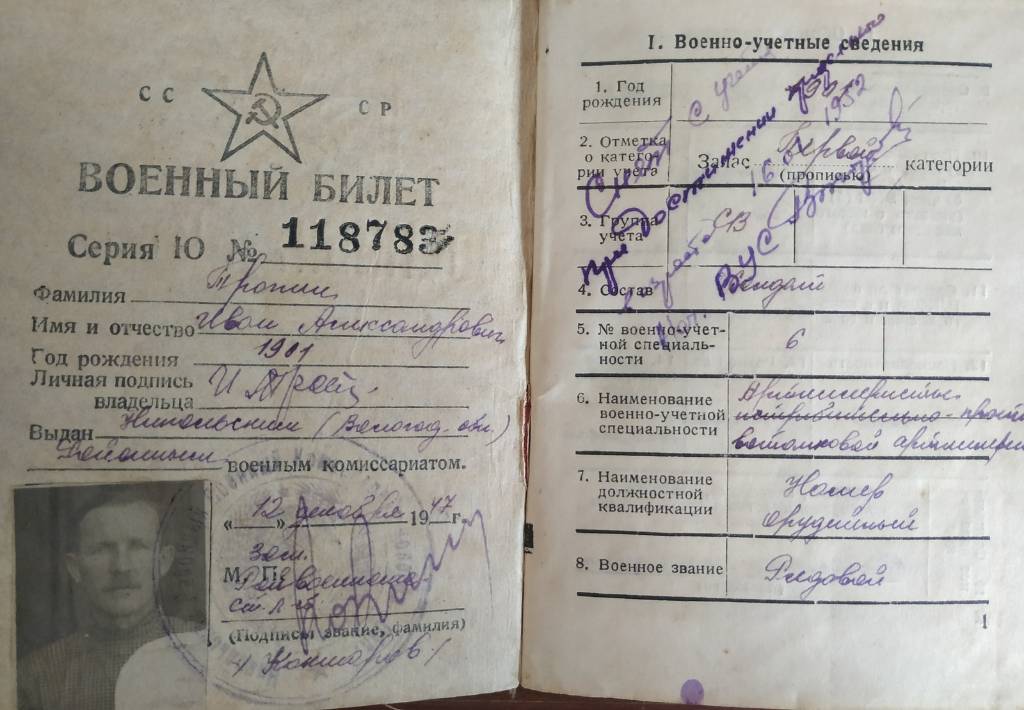 СС СР
ВОЕННЫЙ БИЛЕТ
Серия Ю № 118783
Фамилия Тропин
Имя и отчество Иван Александрович
Год рождения 1901
Личная подпись
владельца
Выдан Никольским (Вологод. обл.)
Районным военным комиссариатом.
„12" декабря 1947 г.
Зам.
М. П. Рай военкома
ст. л-т
(Подпись, звание, фамилия)
I. Военно-учетные сведения
1. Год
рождения
2. Отметка
о катего-
рии учета
Запас Первой категории
(прописью)
3. Группа
учета
4. Состав
5. № военно-учет-
ной специаль-
ности
6
6. Наименование
военно-учетной
специальности
7. Наименование
должностной
квалификации
Номер
орудийный
8. Военное звание Рядовой
Снят с учета
при достижении предельного
возраста
16 1952
ВУС
1